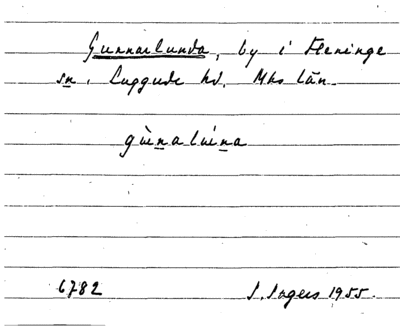 Gunnarlunda, by i Fleninge
sn. Luggude hd. Mhs län.
gùnalúna
6782 I. Ingers 1955.